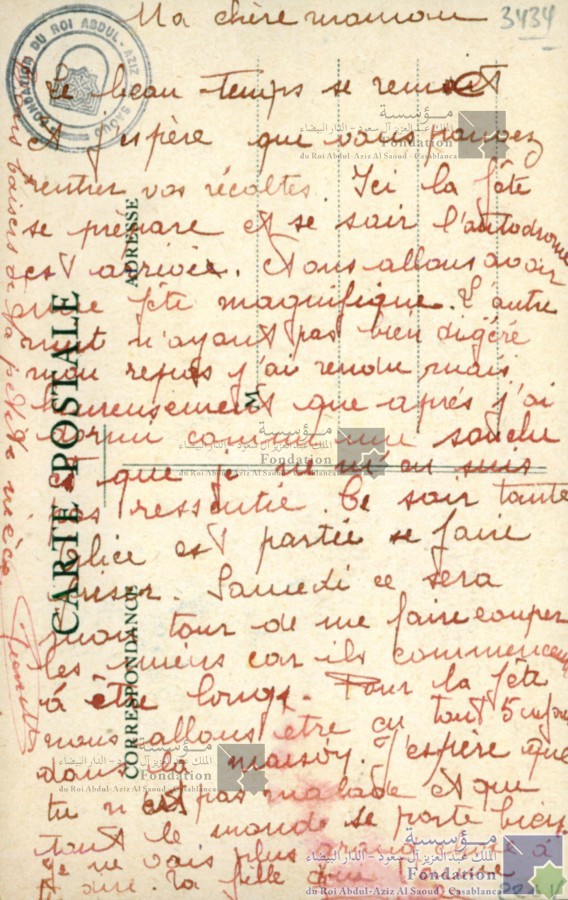 Ma chère maman
3434
FONDATION DU ROI ABDUL-AZIZ
Le beau temps se remet
et j'espère que vous pouvez
rentrer vos récoltes. Ici la fête
se prépare et ce soir l'autodrome
est arrivée. Nous allons avoir
une fête magnifique. L'autre
nuit n'ayant pas bien digéré
mon repas j'ai rendu mais
heureusement que après j'ai
dormi comme un
que je ne m'en suis
pas ressentie. Ce soir tante
Alice est partie se faire
friser. Samedi ce sera
mon tour de me faire couper
les miens car ils commencent
à être longs. Pour la fête
nous allons etre en tout 5
dans la maison. J'espère que
tu n'est pas malade et que
tout le monde se porte bien
Je ne vais plus
la fille
baisers de ta petite
CARTE POSTALE
CORRESPONDANCE
ADRESSE
M
مؤسسة
الملك عبد العزيز آل سعود - الدار البيضاء
Fondation
du Roi Abdul-Aziz Al Saoud - Casablanca
مؤسسة
Fondation
مؤسسة
الملك عبد العزيز آل سعود - الدار البيضاء
Fondation
du Roi Abdul-Aziz Al Saoud - Casablanca
مؤسسة
الملك عبد العزيز آل سعود - الدار البيضاء
Fondation
du Roi Abdul-Aziz Al Saoud - Casablanca